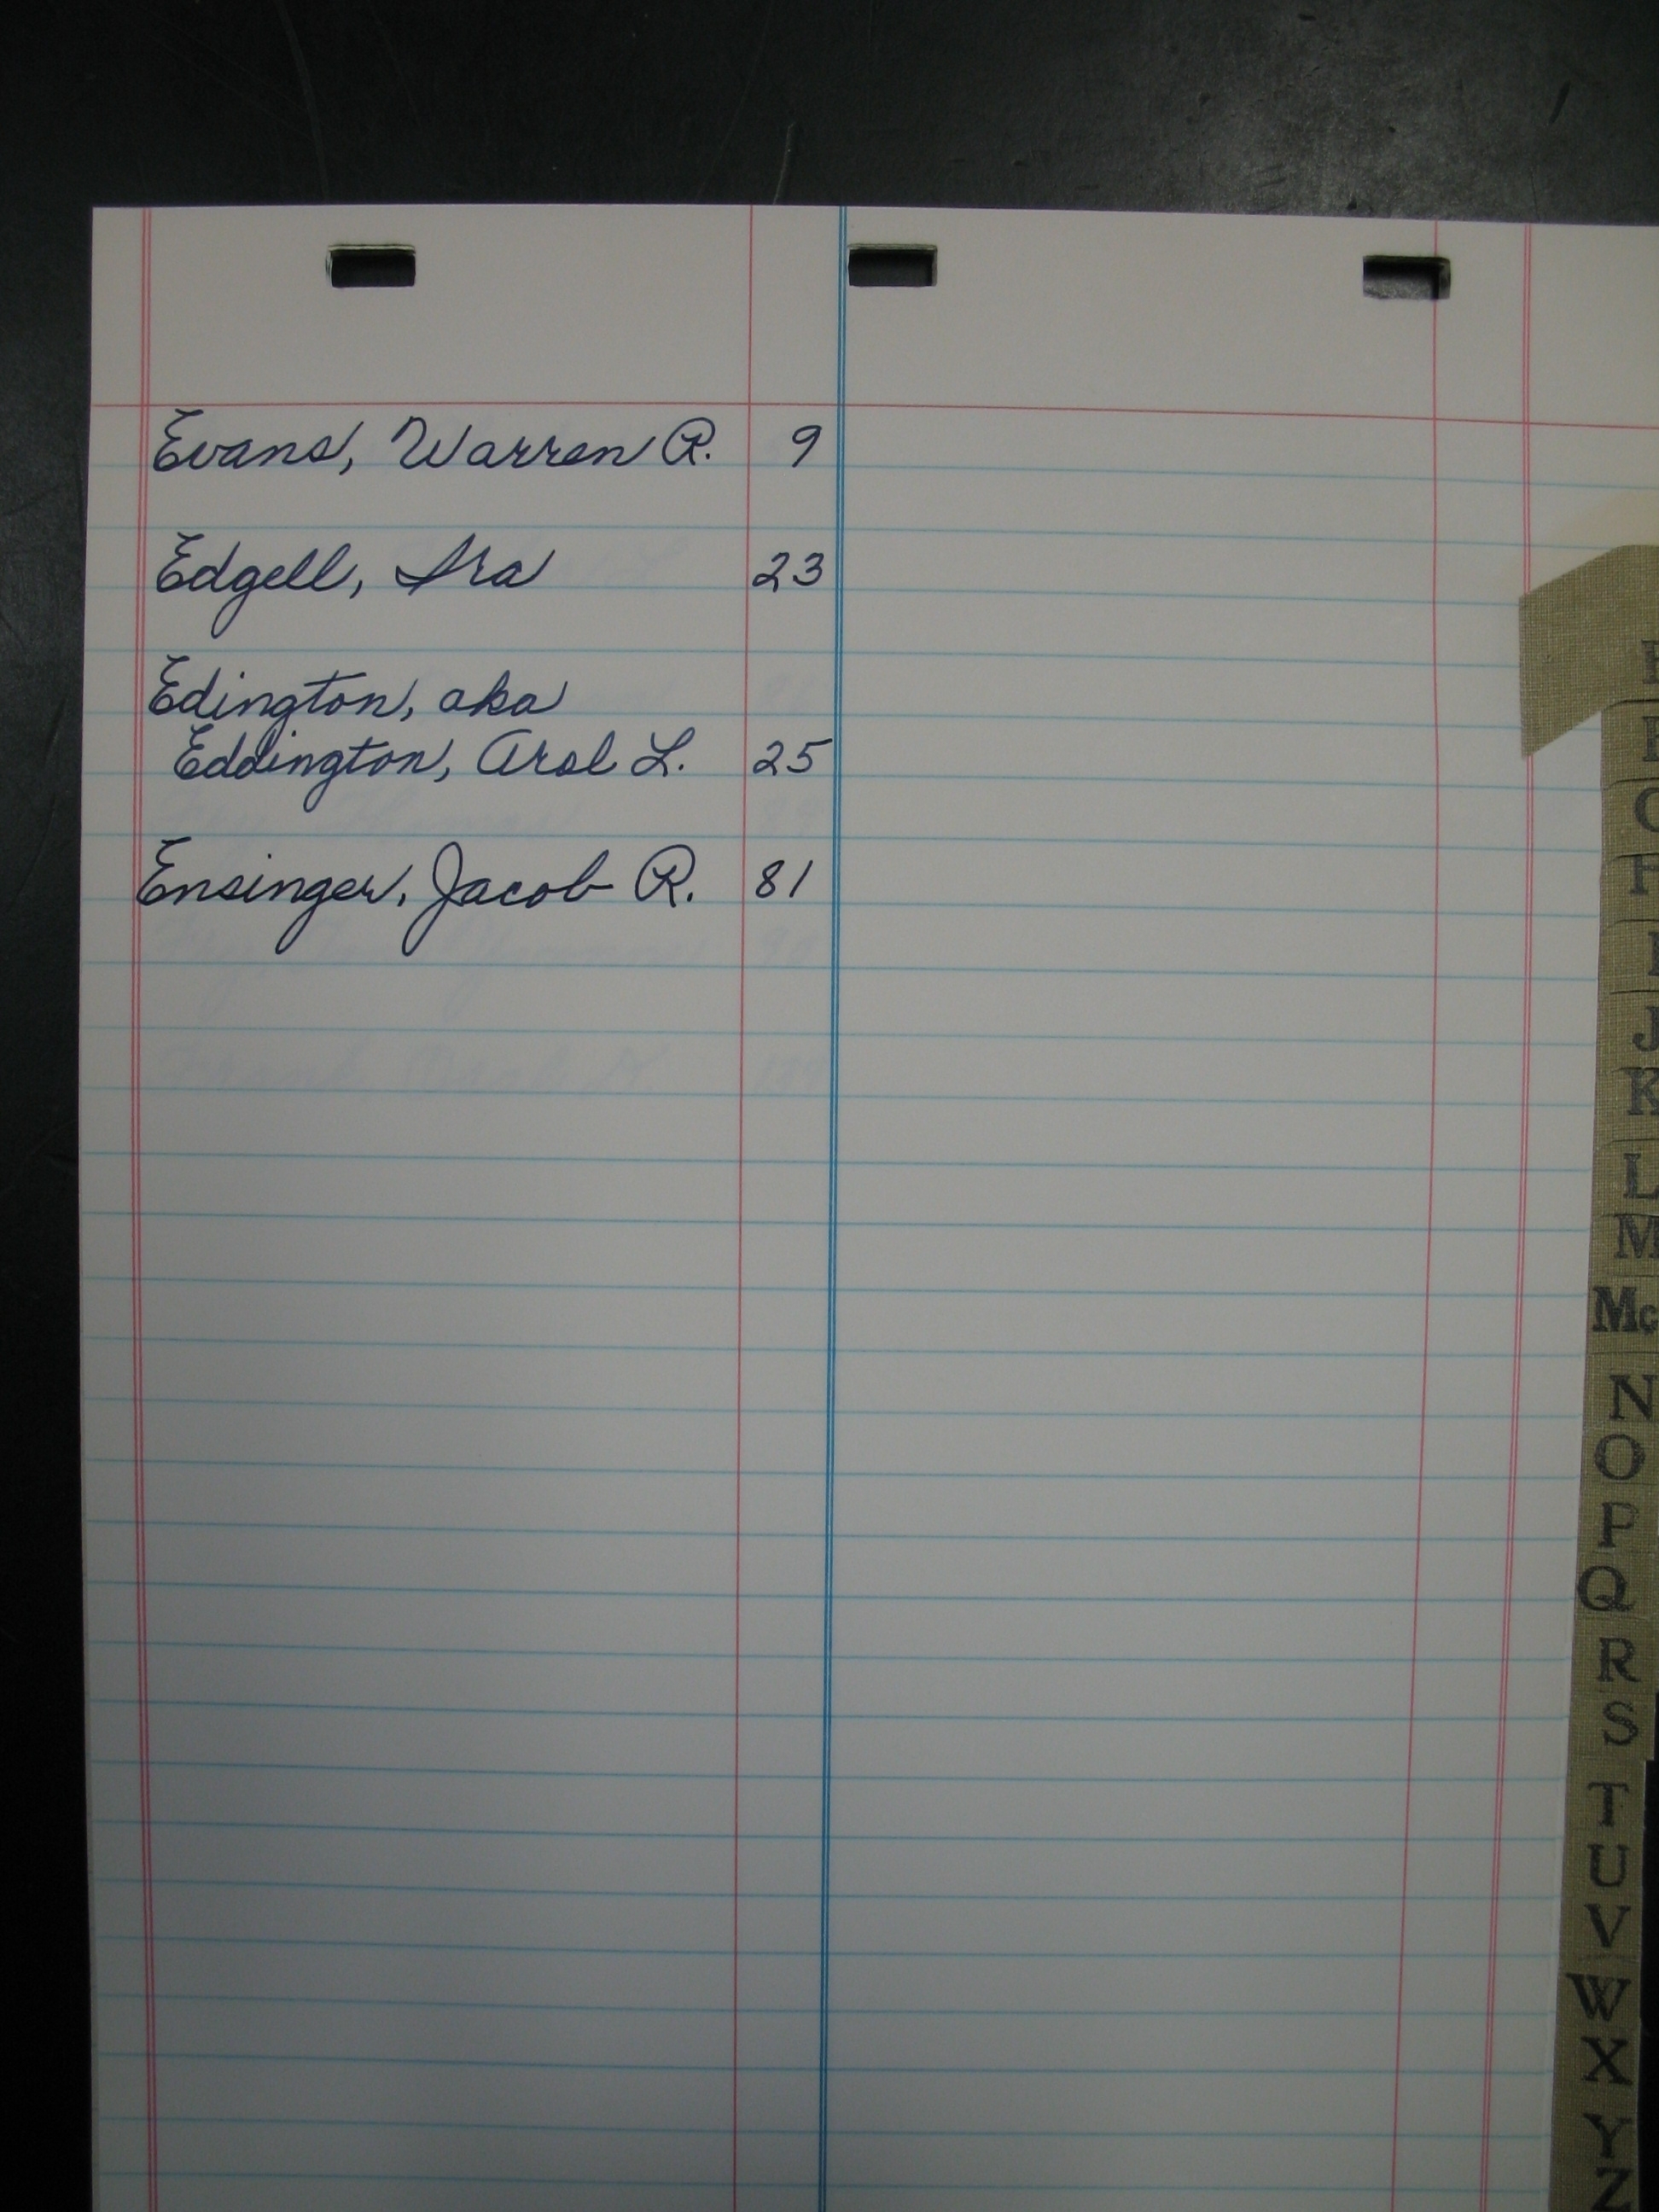 Evans, Warren R. 9
Edgell, Ira 23
Edington, aka
Eddington, Arol L. 25
Ensinger, Jacob R. 81
J
K
L
M
Mc
N
O
P
Q
R
S
T
U
V
W
X
Y
Z